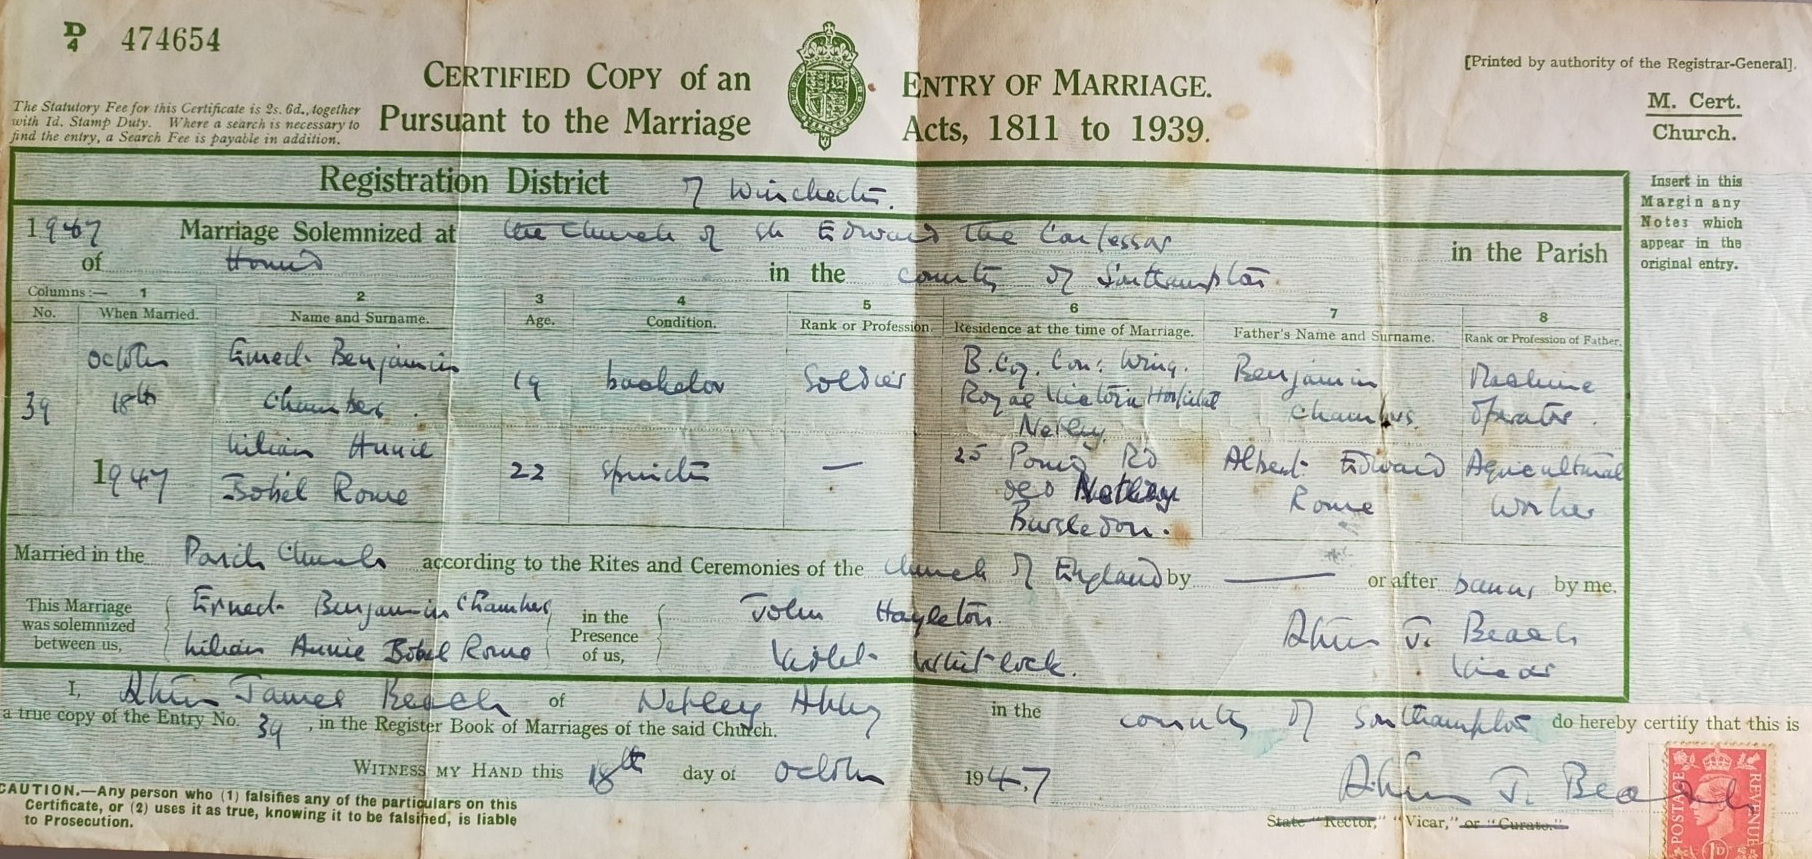 D 4 474654
[Printed by authority of the Registrar-General].
CERTIFIED COPY of an ENTRY OF MARRIAGE.
M. Cert.
Church.
The Statutory Fee for this Certificate is 2s. 6d., together
with 1d. Stamp Duty. Where a search is necessary to
find the entry, a Search Fee is payable in addition.
Pursuant to the Marriage Acts, 1811 to 1939.
Registration District of Winchester.
Insert in this
Margin any
Notes which
appear in the
original entry.
1947 Marriage Solemnized at the Church of St Edward the Confessor in the Parish
of Hound in the county of Southampton.
Columns:— 1 2 3 4 5 6 7 8
No. When Married. Name and Surname. Age. Condition. Rank or Profession. Residence at the time of Marriage. Father's Name and Surname. Rank or Profession of Father.
39 October 18th 1947
Ernest Benjamin Chambers 19 bachelor Soldier B. Coy. Con: Wing. Royal Victoria Hospital Netley. Benjamin Chambers. Machine Operator.
Lilian Annie Rowe 22 spinster — 25 Rd Netley Bursledon. Albert Edward Rowe Agricultural worker
Married in the Parish Church according to the Rites and Ceremonies of the Church of England by — or after banns by me.
This Marriage
was solemnized
between us,
Ernest Benjamin Chambers
Lilian Annie Rowe
in the
Presence
of us,
John Hayleton.
Violet Whitlock.
J. Beach
Vicar
I, James Beach of Netley Abbey in the county of Southampton do hereby certify that this is
a true copy of the Entry No. 39, in the Register Book of Marriages of the said Church.
WITNESS MY HAND this 18th day of October 1947
J. Beach
State "Rector," "Vicar," or "Curate."
CAUTION.—Any person who (1) falsifies any of the particulars on this
Certificate, or (2) uses it as true, knowing it to be falsified, is liable
to Prosecution.
POSTAGE REVENUE
1D